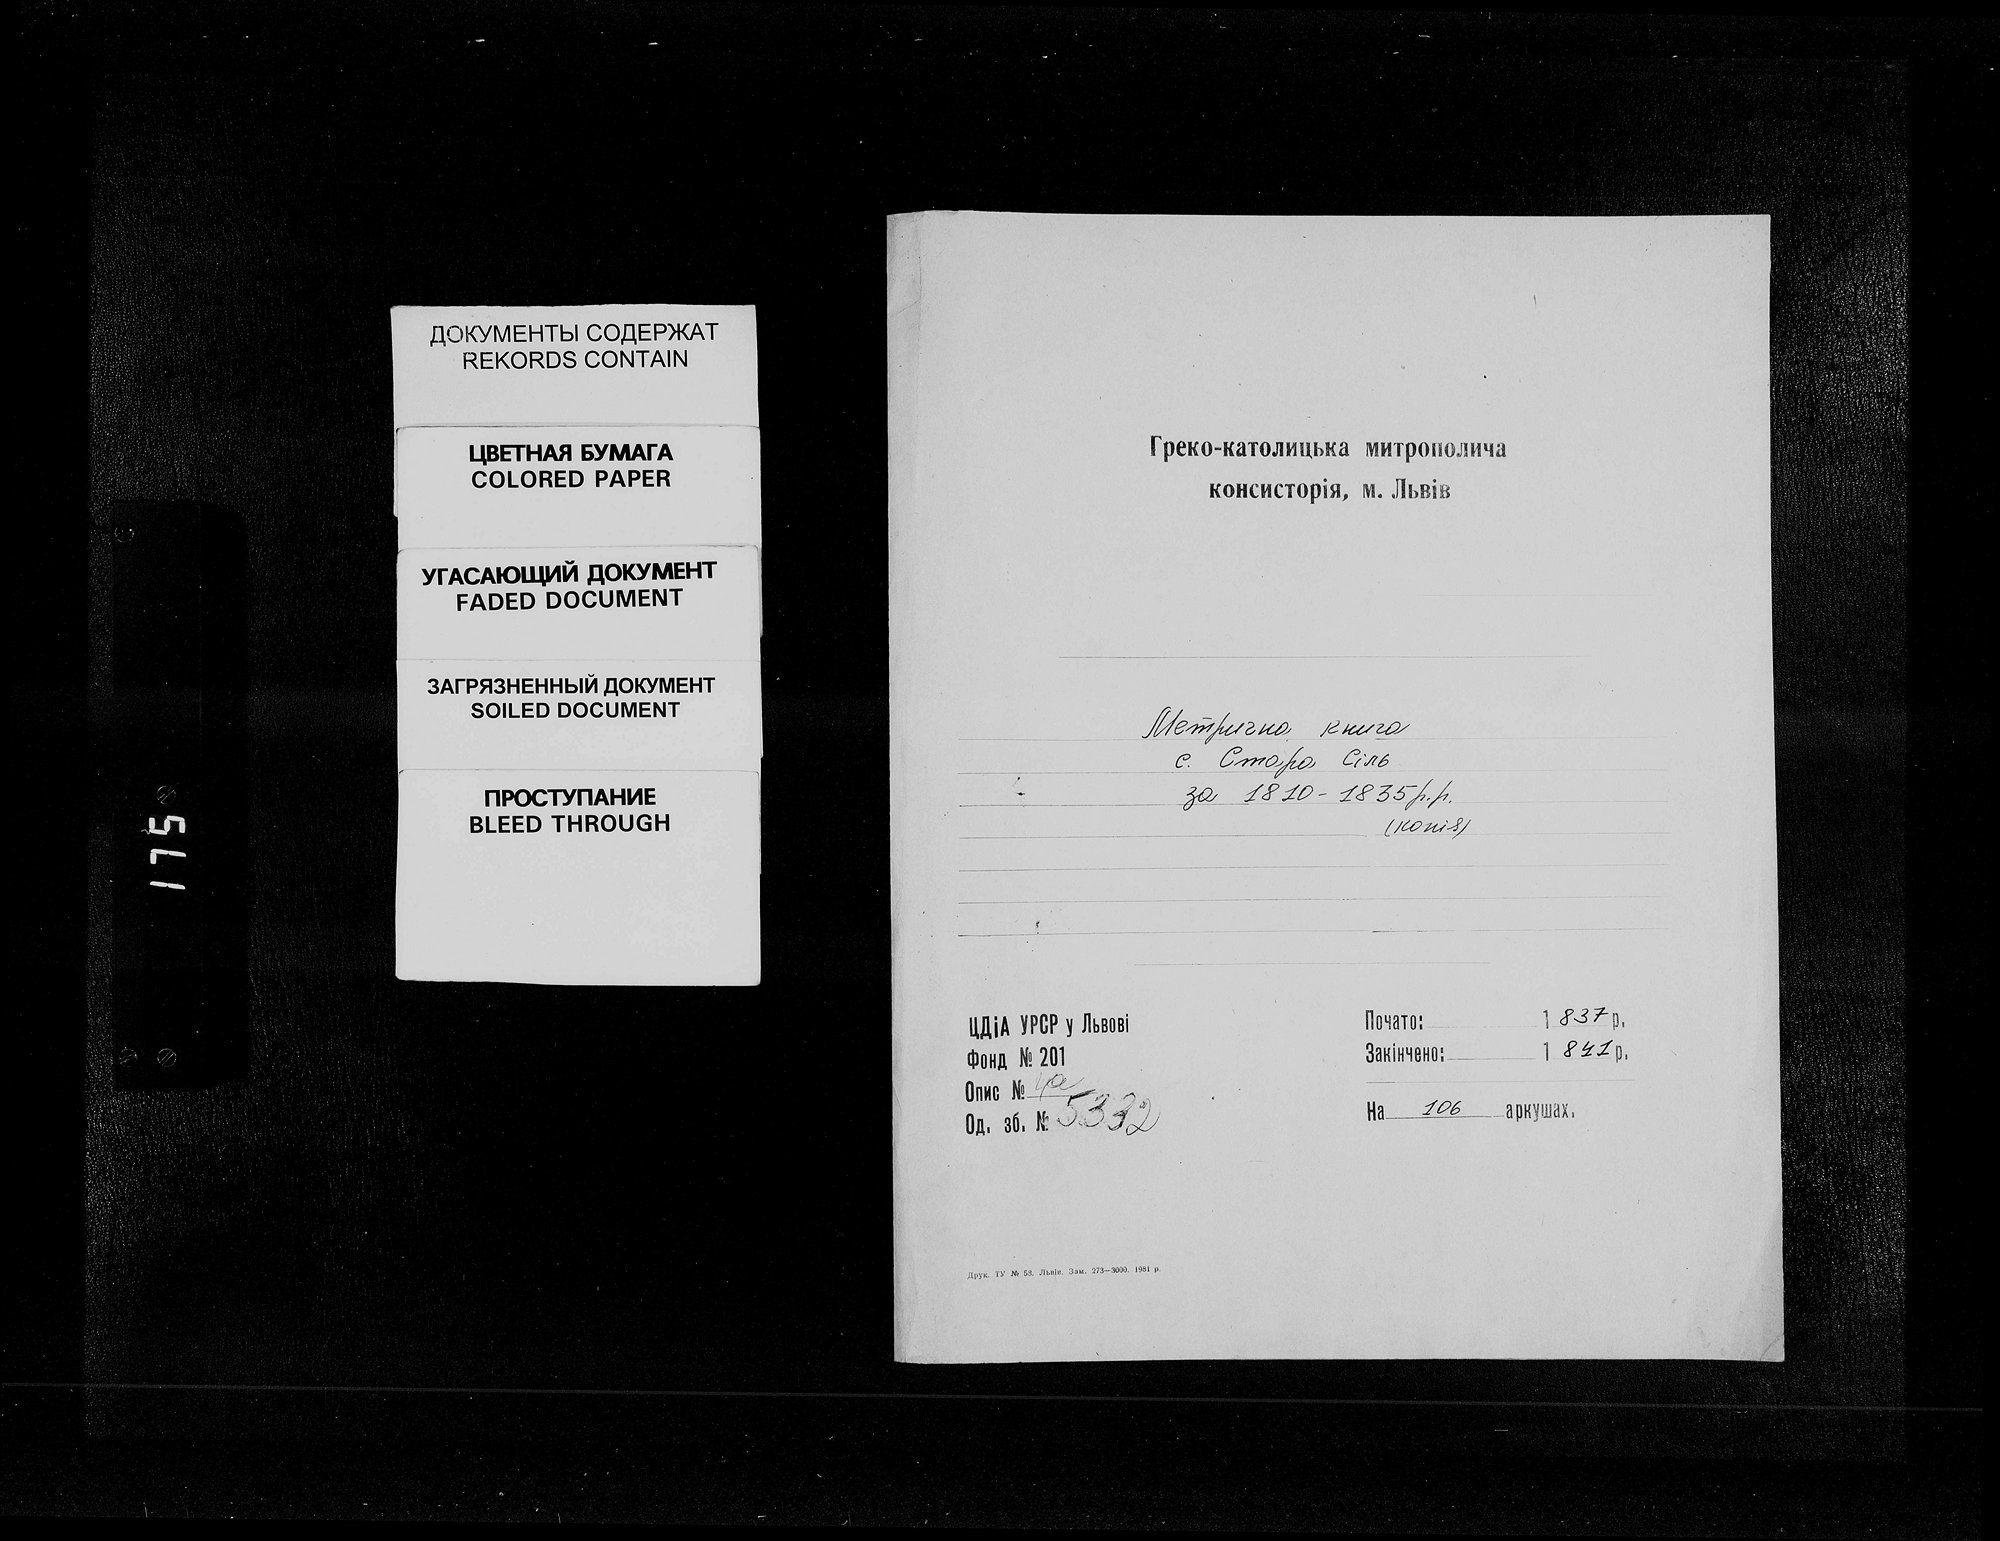 175
ДОКУМЕНТЫ СОДЕРЖАТ
REKORDS CONTAIN
ЦВЕТНАЯ БУМАГА
COLORED PAPER
УГАСАЮЩИЙ ДОКУМЕНТ
FADED DOCUMENT
ЗАГРЯЗНЕННЫЙ ДОКУМЕНТ
SOILED DOCUMENT
ПРОСТУПАНИЕ
BLEED THROUGH
Греко-католицька митрополича
консисторія, м. Львів
Метрична книга
с. Стара Сіль
за 1810-1835 р.р.
(копія)
ЦДіА УРСР у Львові
Фонд № 201
Опис № 4а
Од. зб. № 5332
Почато: 1837 р.
Закінчено: 1841 р.
На 106 аркушах.
Друк. ТУ № 58. Львів. Зам. 273—3000. 1981 р.